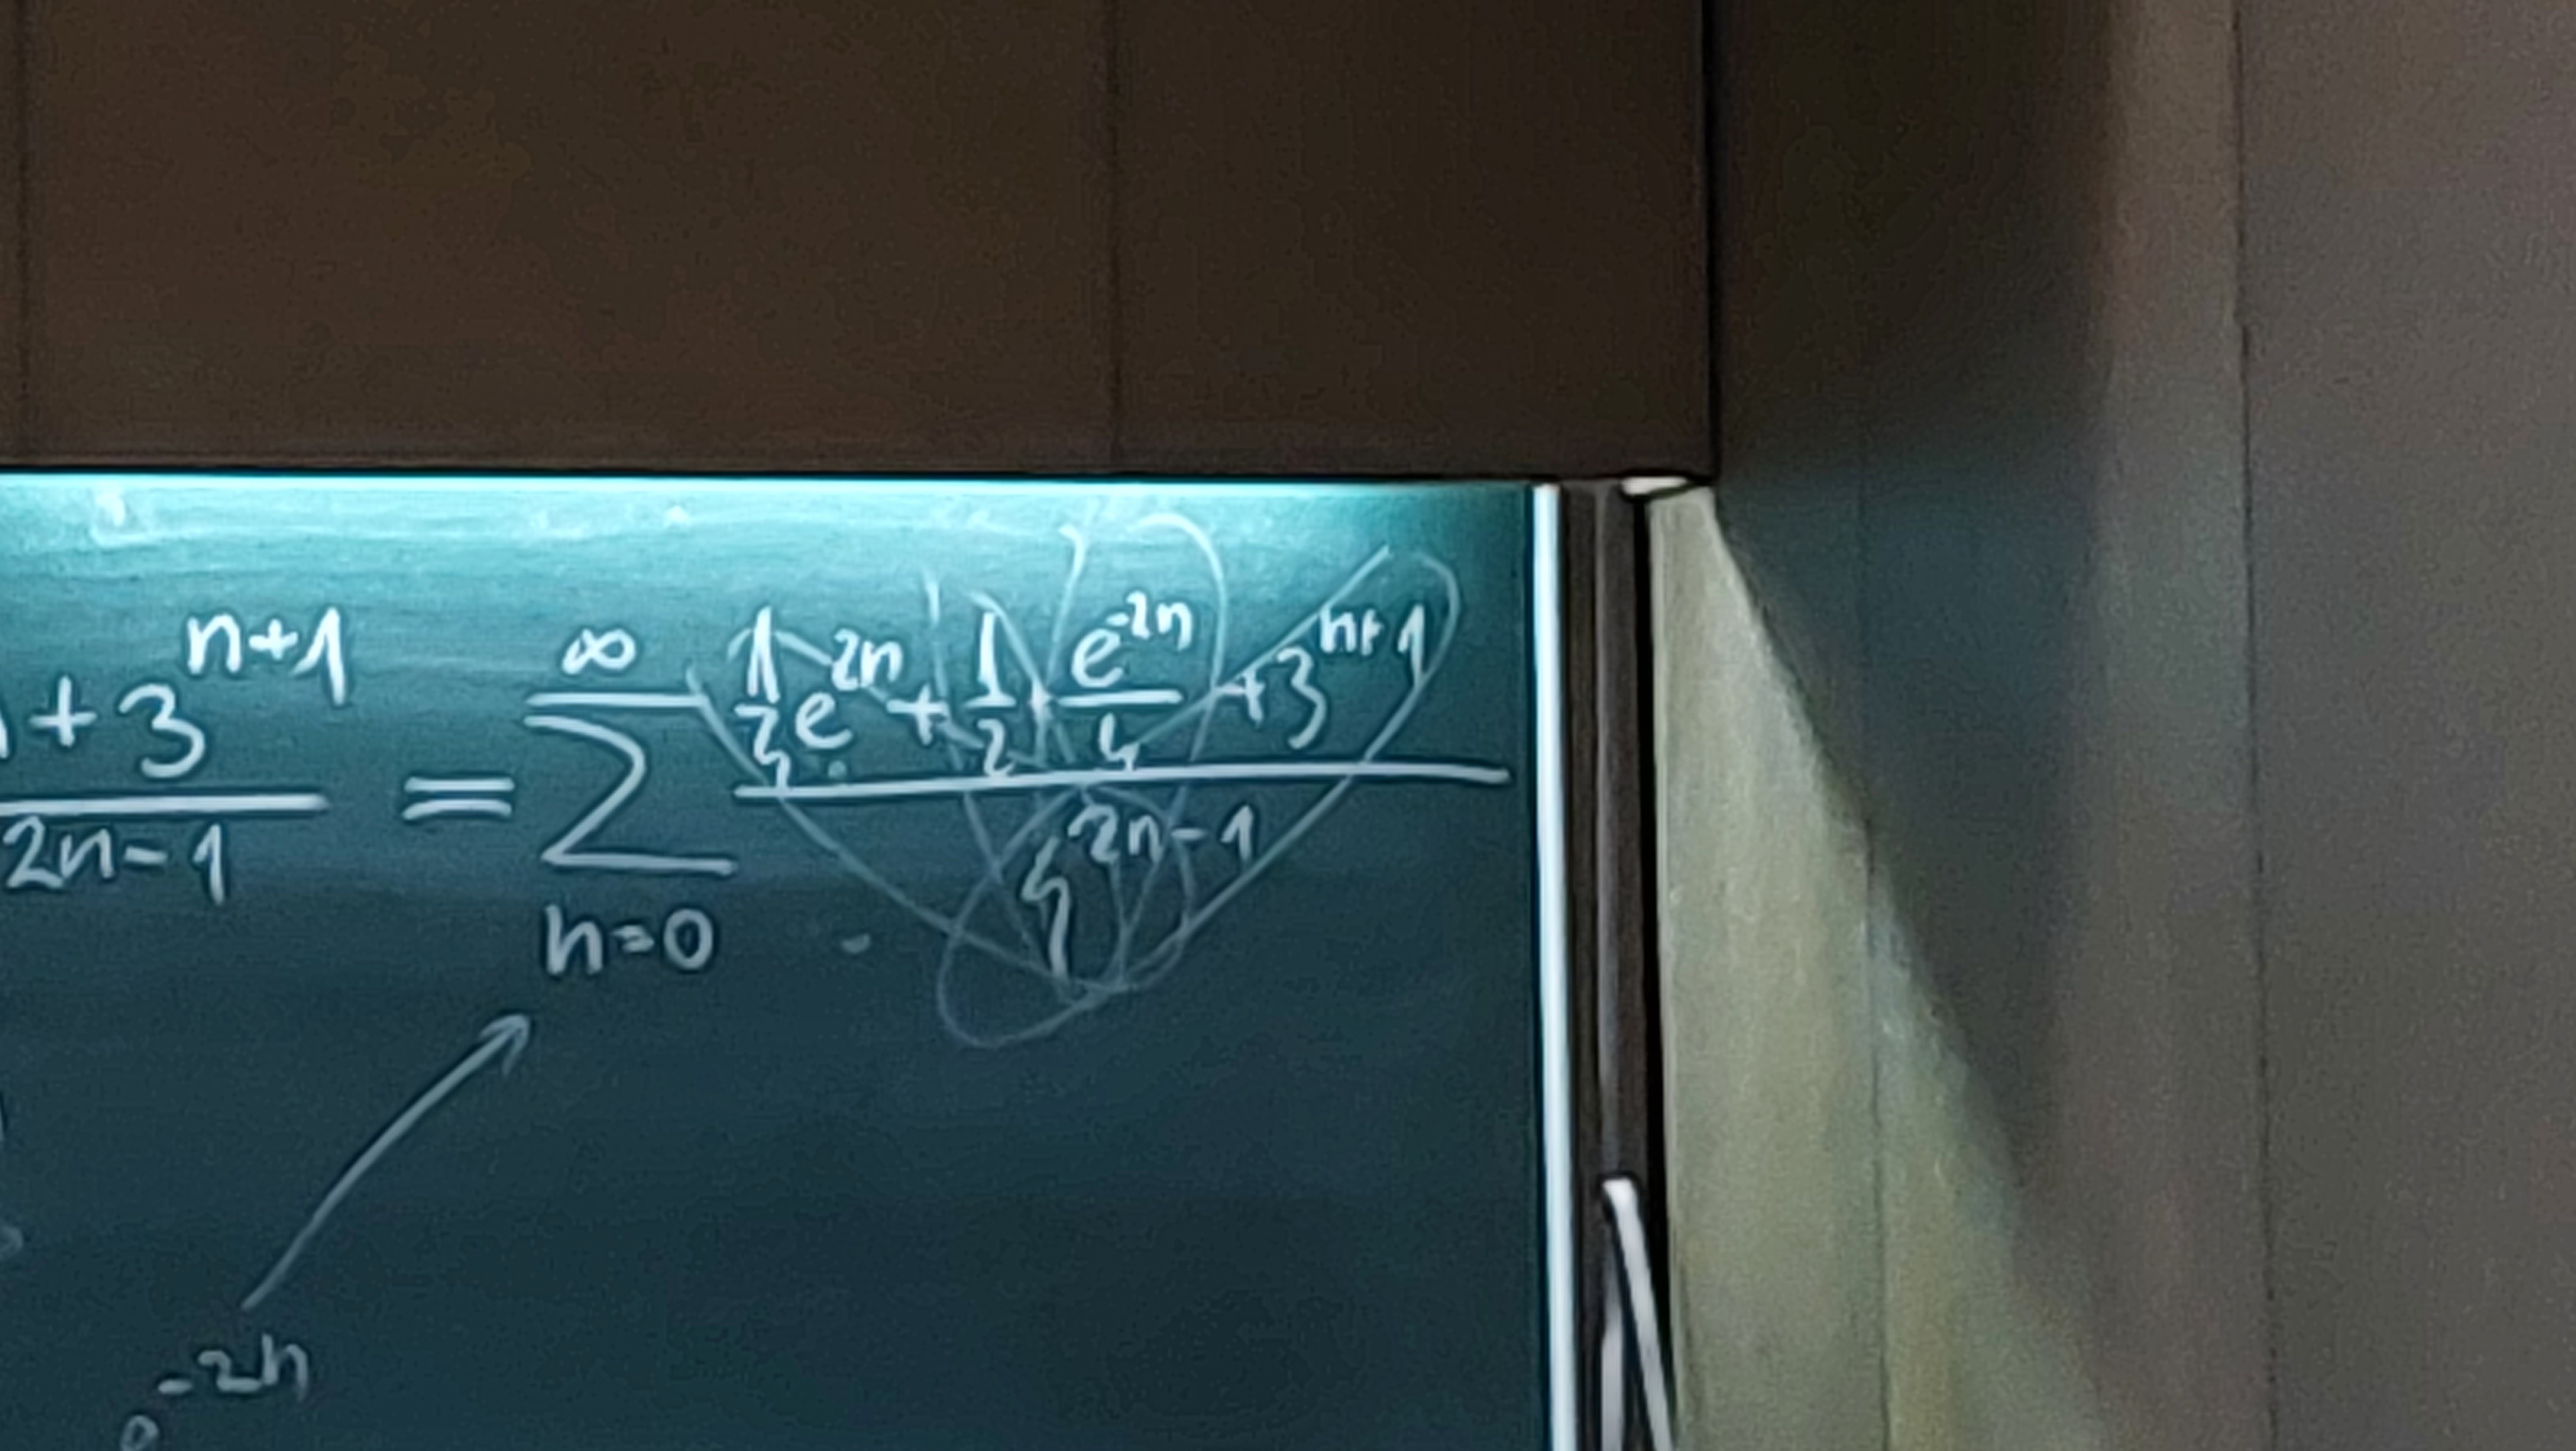 + 3^{n+1} / 2n-1 = ∞ ∑ n=0 (1/4 e^{2n} + 1/2 + e^{-2n}/4 + 3^{n+1}) / 4^{2n-1}
-2n